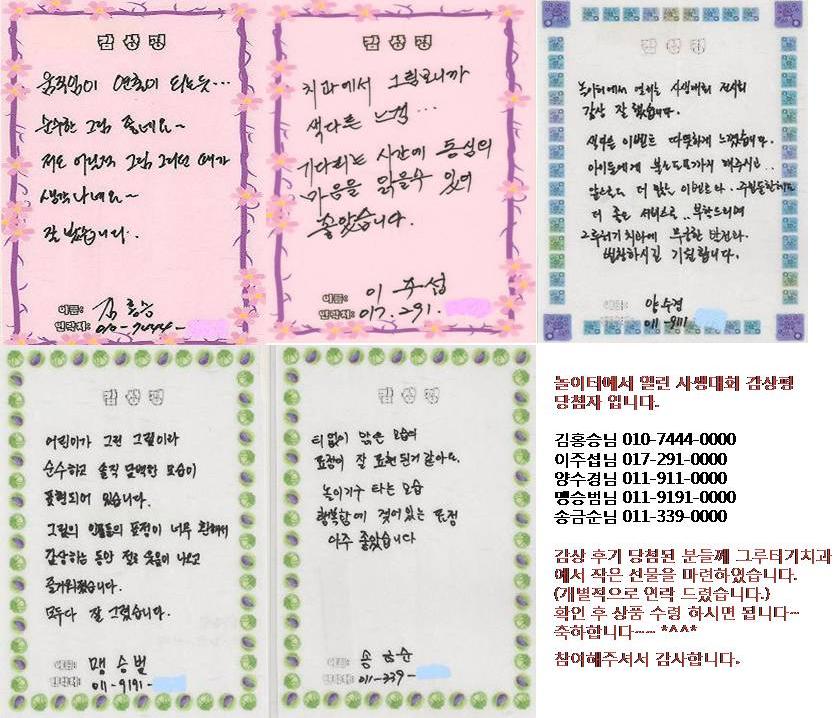 감상평
움직임이 연출이 되는듯...
순수한 그림 좋네요~
저도 어릴적 그림 그리던 때가
생각나네요~
잘 봤습니다.
이름: 김홍승
연락처: 010-7444-
감상평
치과에서 그림보니까
색다른 느낌...
기다리는 시간에 동심의
마음을 읽을수 있어
좋았습니다.
이름: 이주섭
연락처: 017-291-
감상평
놀이터에서 열리는 사생대회 전시회
감상 잘 했습니다.
색다른 이벤트 따뜻하게 느꼈습니다.
아이들에게
앞으로도 더 많은 이벤트와
더 좋은 서비스로.. 부탁드리며
그루터기 치과에 무궁한 발전과
번창하시길 기원합니다.
이름: 양수경
연락처: 011-911
감상평
어린이가 그린 그림이라
순수하고 솔직 담백한 모습이
표현되어 있습니다.
그림의 인물들의 표정이 너무 환해서
감상하는 동안 절로 웃음이 나오고
즐거워졌습니다.
모두다 잘 그렸습니다.
이름: 맹승범
연락처: 011-9191-
감상평
티없이 맑은 모습의
표정이 잘 표현된거 같아요.
놀이기구 타는 모습
행복함에 젖어있는 표정
아주 좋았습니다
이름: 송금순
연락처: 011-339-
놀이터에서 열린 사생대회 감상평
당첨자 입니다.
김홍승님 010-7444-0000
이주섭님 017-291-0000
양수경님 011-911-0000
맹승범님 011-9191-0000
송금순님 011-339-0000
감상 후기 당첨된 분들께 그루터기치과
에서 작은 선물을 마련하였습니다.
(개별적으로 연락 드렸습니다.)
확인 후 상품 수령 하시면 됩니다~
축하합니다~~ *^^*
참여해주셔서 감사합니다.